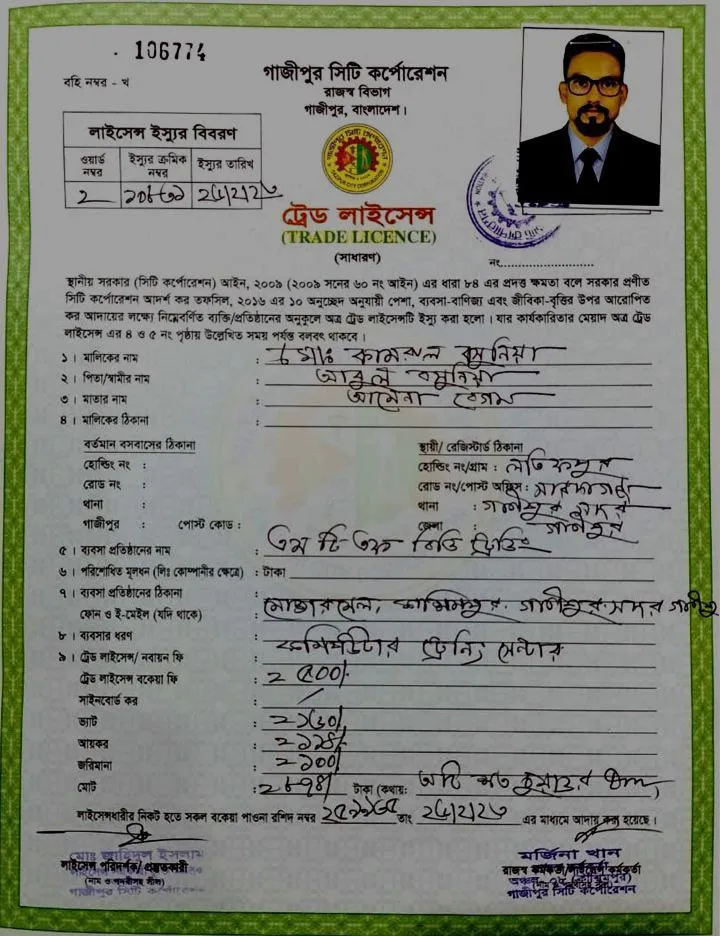 106774
বহি নম্বর - খ
গাজীপুর সিটি কর্পোরেশন
রাজস্ব বিভাগ
গাজীপুর, বাংলাদেশ।
লাইসেন্স ইস্যুর বিবরণ
ওয়ার্ড নম্বর
ইস্যুর ক্রমিক নম্বর
ইস্যুর তারিখ
২
ট্রেড লাইসেন্স
(TRADE LICENCE)
(সাধারণ)
নং
স্থানীয় সরকার (সিটি কর্পোরেশন) আইন, ২০০৯ (২০০৯ সনের ৬০ নং আইন) এর ধারা ৮৪ এর প্রদত্ত ক্ষমতা বলে সরকার প্রণীত
সিটি কর্পোরেশন আদর্শ কর তফসিল, ২০১৬ এর ১০ অনুচ্ছেদ অনুযায়ী পেশা, ব্যবসা-বাণিজ্য এবং জীবিকা-বৃত্তির উপর আরোপিত
কর আদায়ের লক্ষ্যে নিম্নেবর্ণিত ব্যক্তি/প্রতিষ্ঠানের অনুকুলে অত্র ট্রেড লাইসেন্টটি ইস্যু করা হলো। যার কার্যকারিতার মেয়াদ অত্র ট্রেড
লাইসেন্স এর ৪ ও ৫ নং পৃষ্ঠায় উল্লেখিত সময় পর্যন্ত বলবৎ থাকবে।
১। মালিকের নাম : মোঃ কামরুল বসুনিয়া
২। পিতা/স্বামীর নাম : আবুল বসুনিয়া
৩। মাতার নাম : আমেনা বেগম
৪। মালিকের ঠিকানা :
বর্তমান বসবাসের ঠিকানা
হোল্ডিং নং :
রোড নং :
থানা :
গাজীপুর : পোস্ট কোড :
স্থায়ী/ রেজিস্টার্ড ঠিকানা
হোল্ডিং নং/গ্রাম : লতিফপুর
রোড নং/পোস্ট অফিস : সারদাগঞ্জ
থানা : গাজীপুর সদর
জেলা : গাজীপুর
৫। ব্যবসা প্রতিষ্ঠানের নাম : এম টি এফ বিডি ট্রেডিং
৬। পরিশোধিত মূলধন (লিঃ কোম্পানীর ক্ষেত্রে) : টাকা
৭। ব্যবসা প্রতিষ্ঠানের ঠিকানা
ফোন ও ই-মেইল (যদি থাকে) : কাশিমপুর, গাজীপুর সদর গাজীপুর
৮। ব্যবসার ধরণ : কম্পিউটার ট্রেনিং সেন্টার
৯। ট্রেড লাইসেন্স/ নবায়ন ফি : ২৫০০/-
ট্রেড লাইসেন্স বকেয়া ফি :
সাইনবোর্ড কর :
ভ্যাট :
আয়কর :
জরিমানা :
মোট : টাকা (কথায়:
লাইসেন্সধারীর নিকট হতে সকল বকেয়া পাওনা রশিদ নম্বর তাং এর মাধ্যমে আদায় করা হয়েছে।
মোঃ জাহিদুল ইসলাম
লাইসেন্স পরিদর্শক/ প্রস্তুতকারী
(নাম ও পদবীসহ সীল)
গাজীপুর সিটি কর্পোরেশন
মর্জিনা খান
রাজস্ব কর্মকর্তা/লাইসেন্স কর্মকর্তা
গাজীপুর সিটি কর্পোরেশন